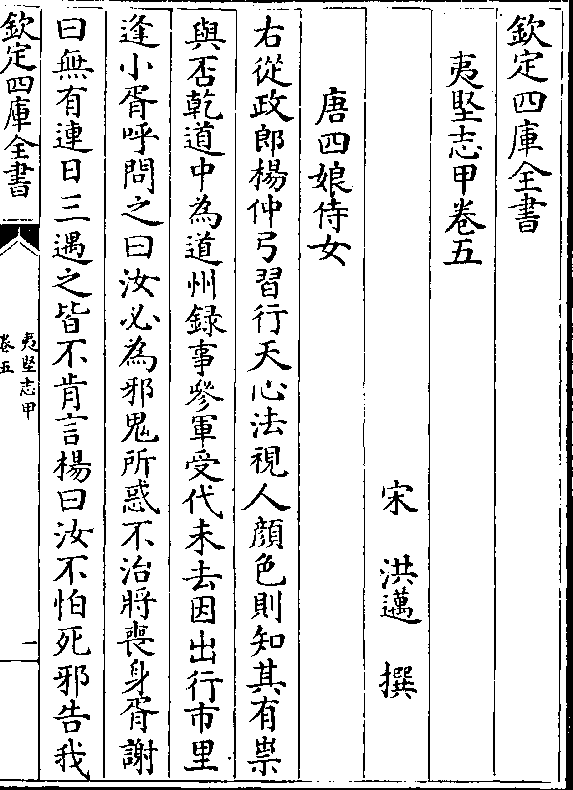 欽定四庫全書
夷堅志甲卷五
宋 洪邁 撰
唐四娘侍女
右從政郎楊仲弓習行天心法視人顔色則知其有祟
與否乾道中為道州録事參軍受代未去因出行市里
逢小胥呼問之曰汝必為邪鬼所惑不治將喪身胥謝
曰無有連日三遇之皆不肯言楊曰汝不怕死邪告我
欽定四庫全書
夷堅志甲
卷五
一